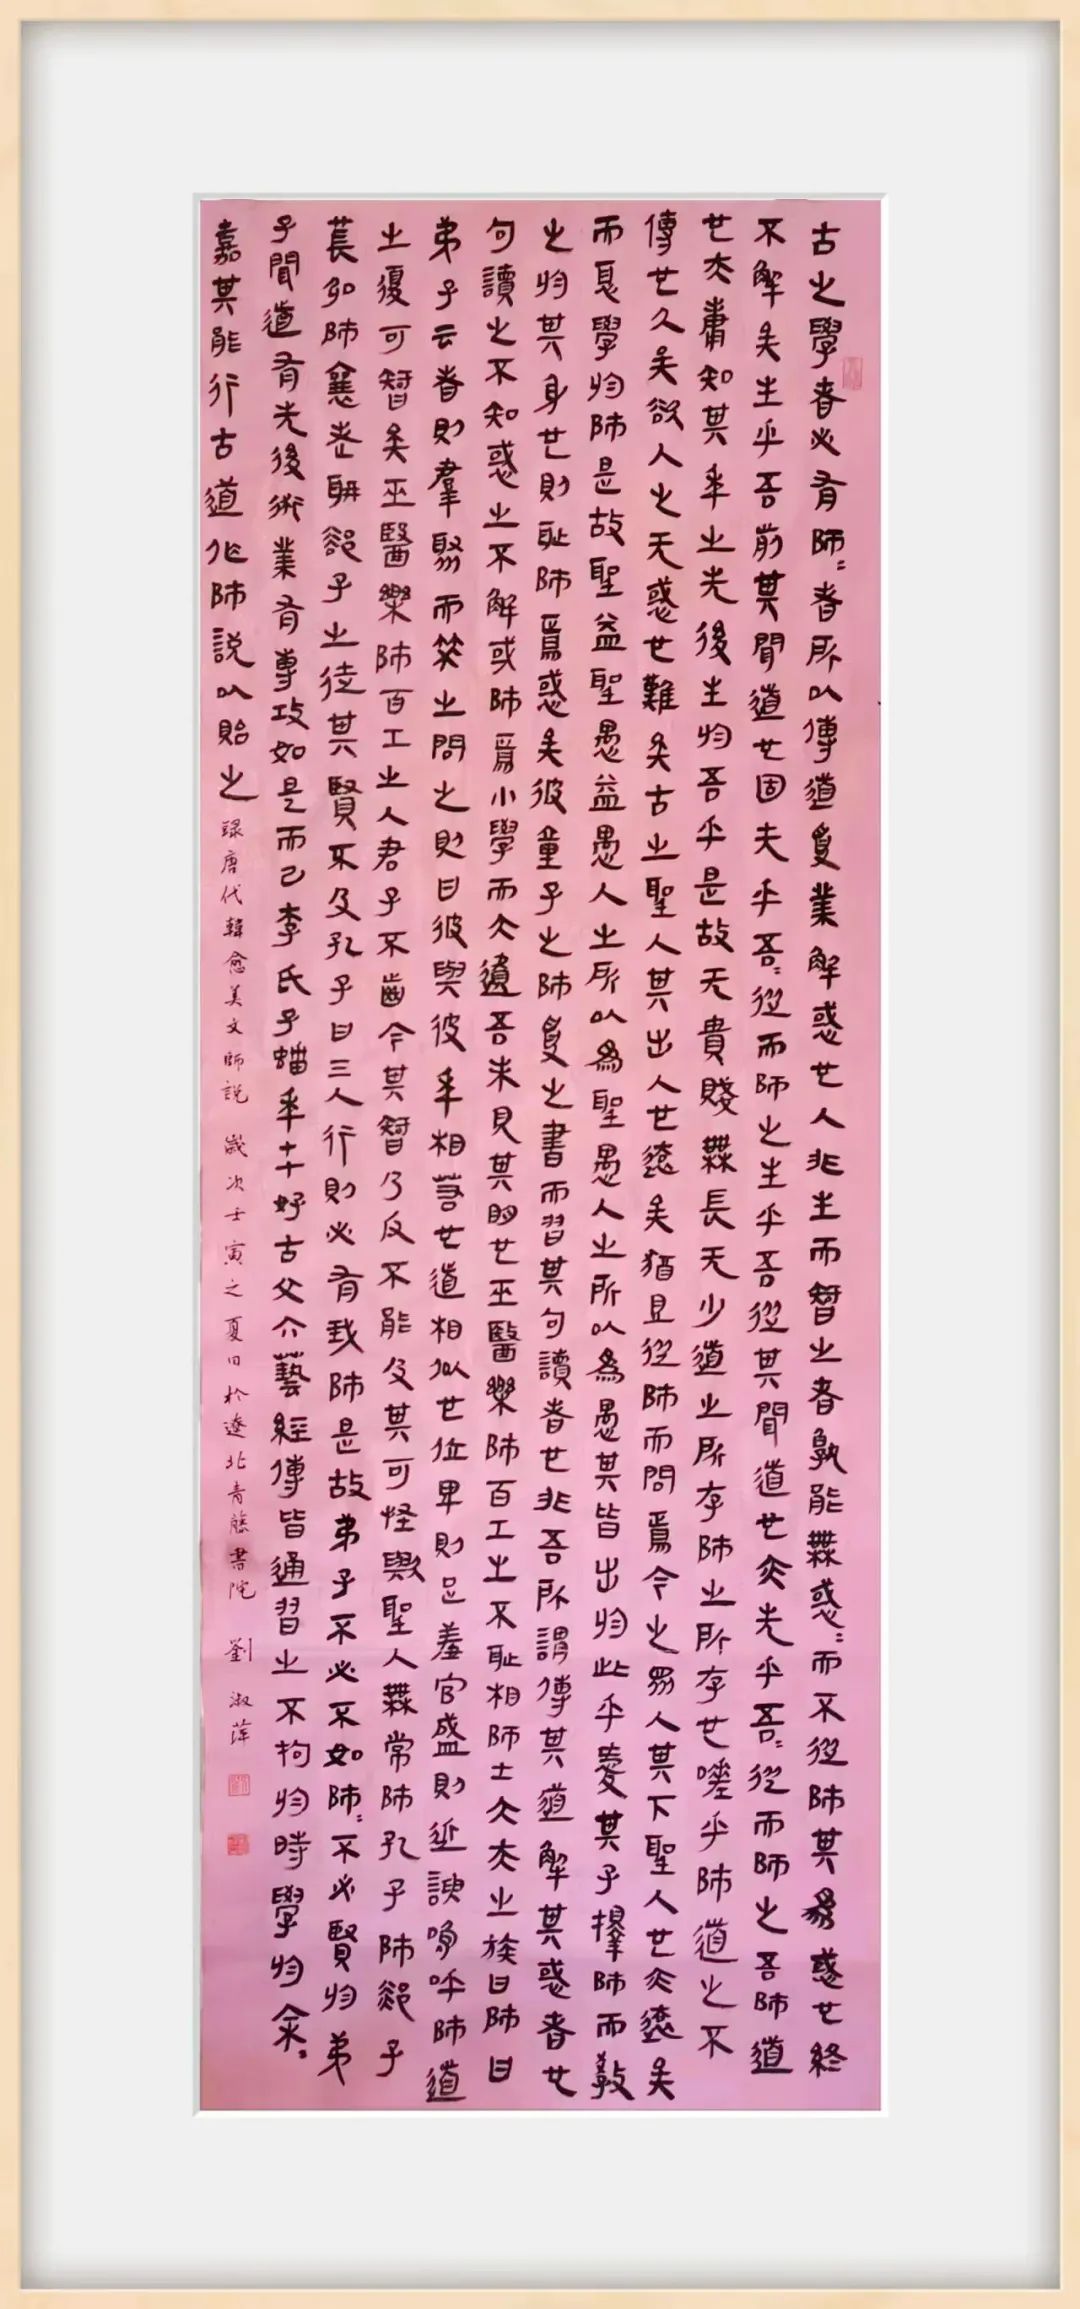 古之學者必有師〻者所以傳道受業解惑也人非生而智之者孰能無惑〻而不從師其爲惑也終
不解矣生乎吾前其聞道也固先乎吾〻從而師之生乎吾從其聞道也亦先乎吾〻從而師之吾師道
也夫庸知其年之先後生於吾乎是故无貴賤無長无少道之所存師之所存也嗟乎師道之不
傳也久矣欲人之无惑也難矣古之聖人其出人也遠矣猶且從師而問焉今之眾人其下聖人也亦遠矣
而恥學於師是故聖益聖愚益愚人之所以為聖愚人之所以為愚其皆出於此乎愛其子擇師而教
之於其身也則恥師焉惑矣彼童子之師受之書而習其句讀者也非吾所謂傳其道解其惑者也
句讀之不知惑之不解或師焉小學而大遺吾未見其明也巫醫樂師百工之不恥相師士大夫之族曰師曰
弟子云者則羣聚而笑之問之則曰彼與彼年相若也道相似也位卑則足羞官盛則近諛嗚呼師道
之復可智矣巫醫樂師百工之人君子不齒今其智乃反不能及其可怪歟聖人無常師孔子師郯子
萇弘師襄老聃郯子之徒其賢不及孔子曰三人行則必有我師是故弟子不必不如師〻不必賢於弟
子聞道有先後術業有專攻如是而已李氏子蟠年十七好古文六藝經傳皆通習之不拘於時學於余〻
嘉其能行古道作師説以貽之 録唐代韓愈美文師説 歲次壬寅之夏日於遼北青藤書院 劉淑萍